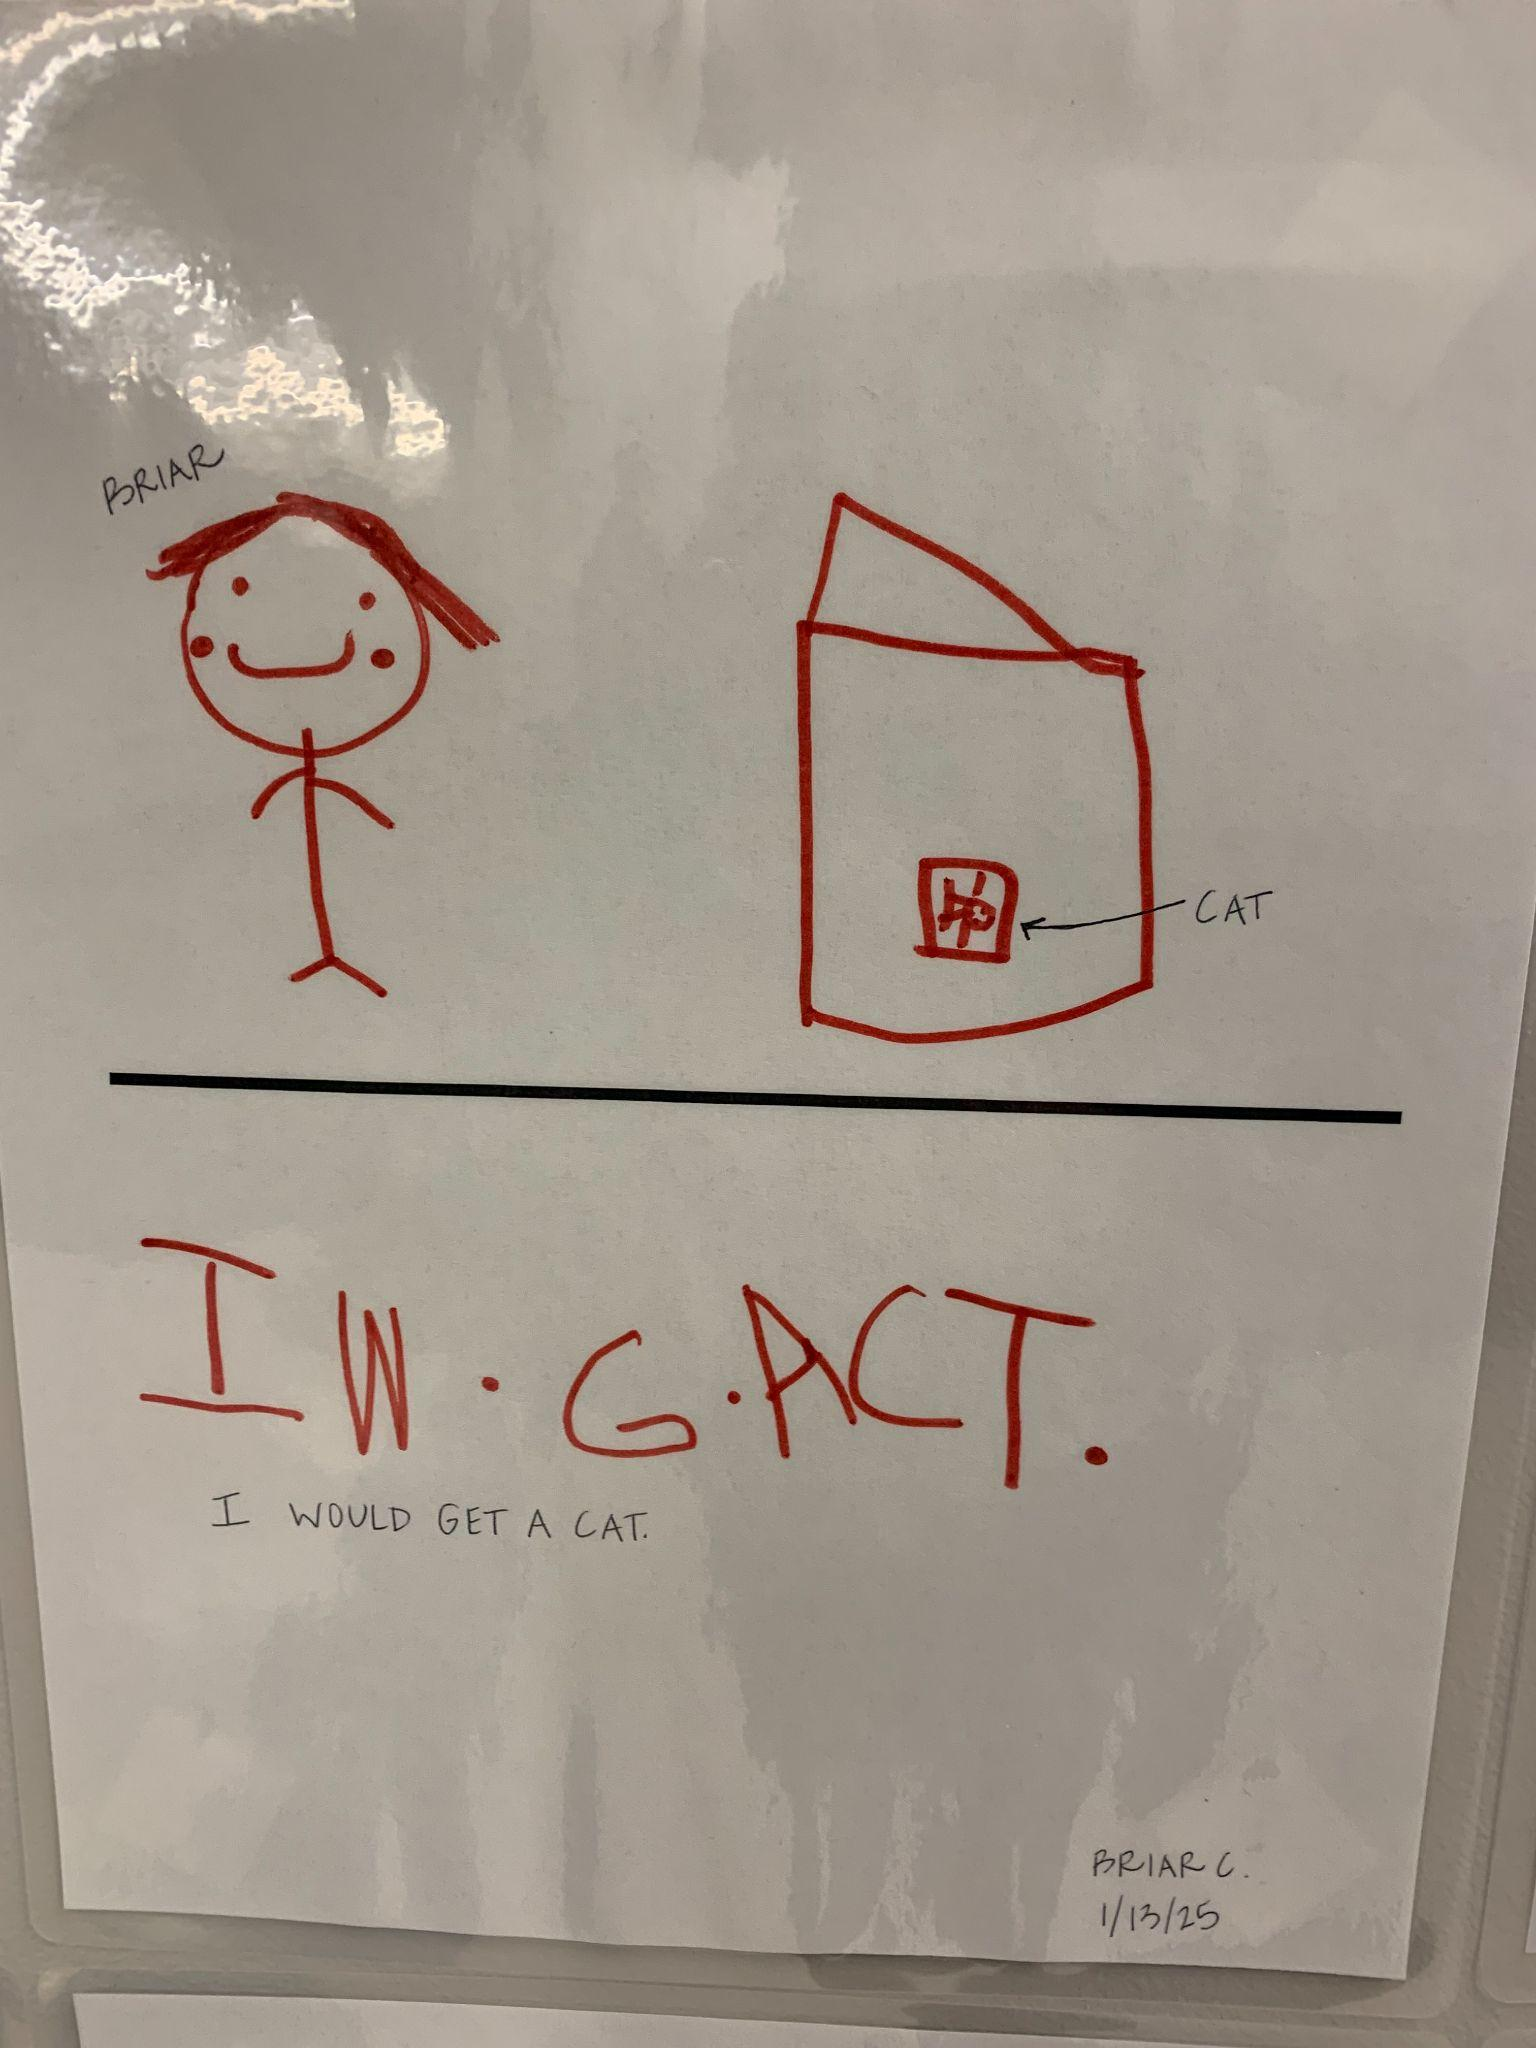 BRIAR
CAT
I W . G . ACT .
I WOULD GET A CAT.
BRIAR C.
1/13/25